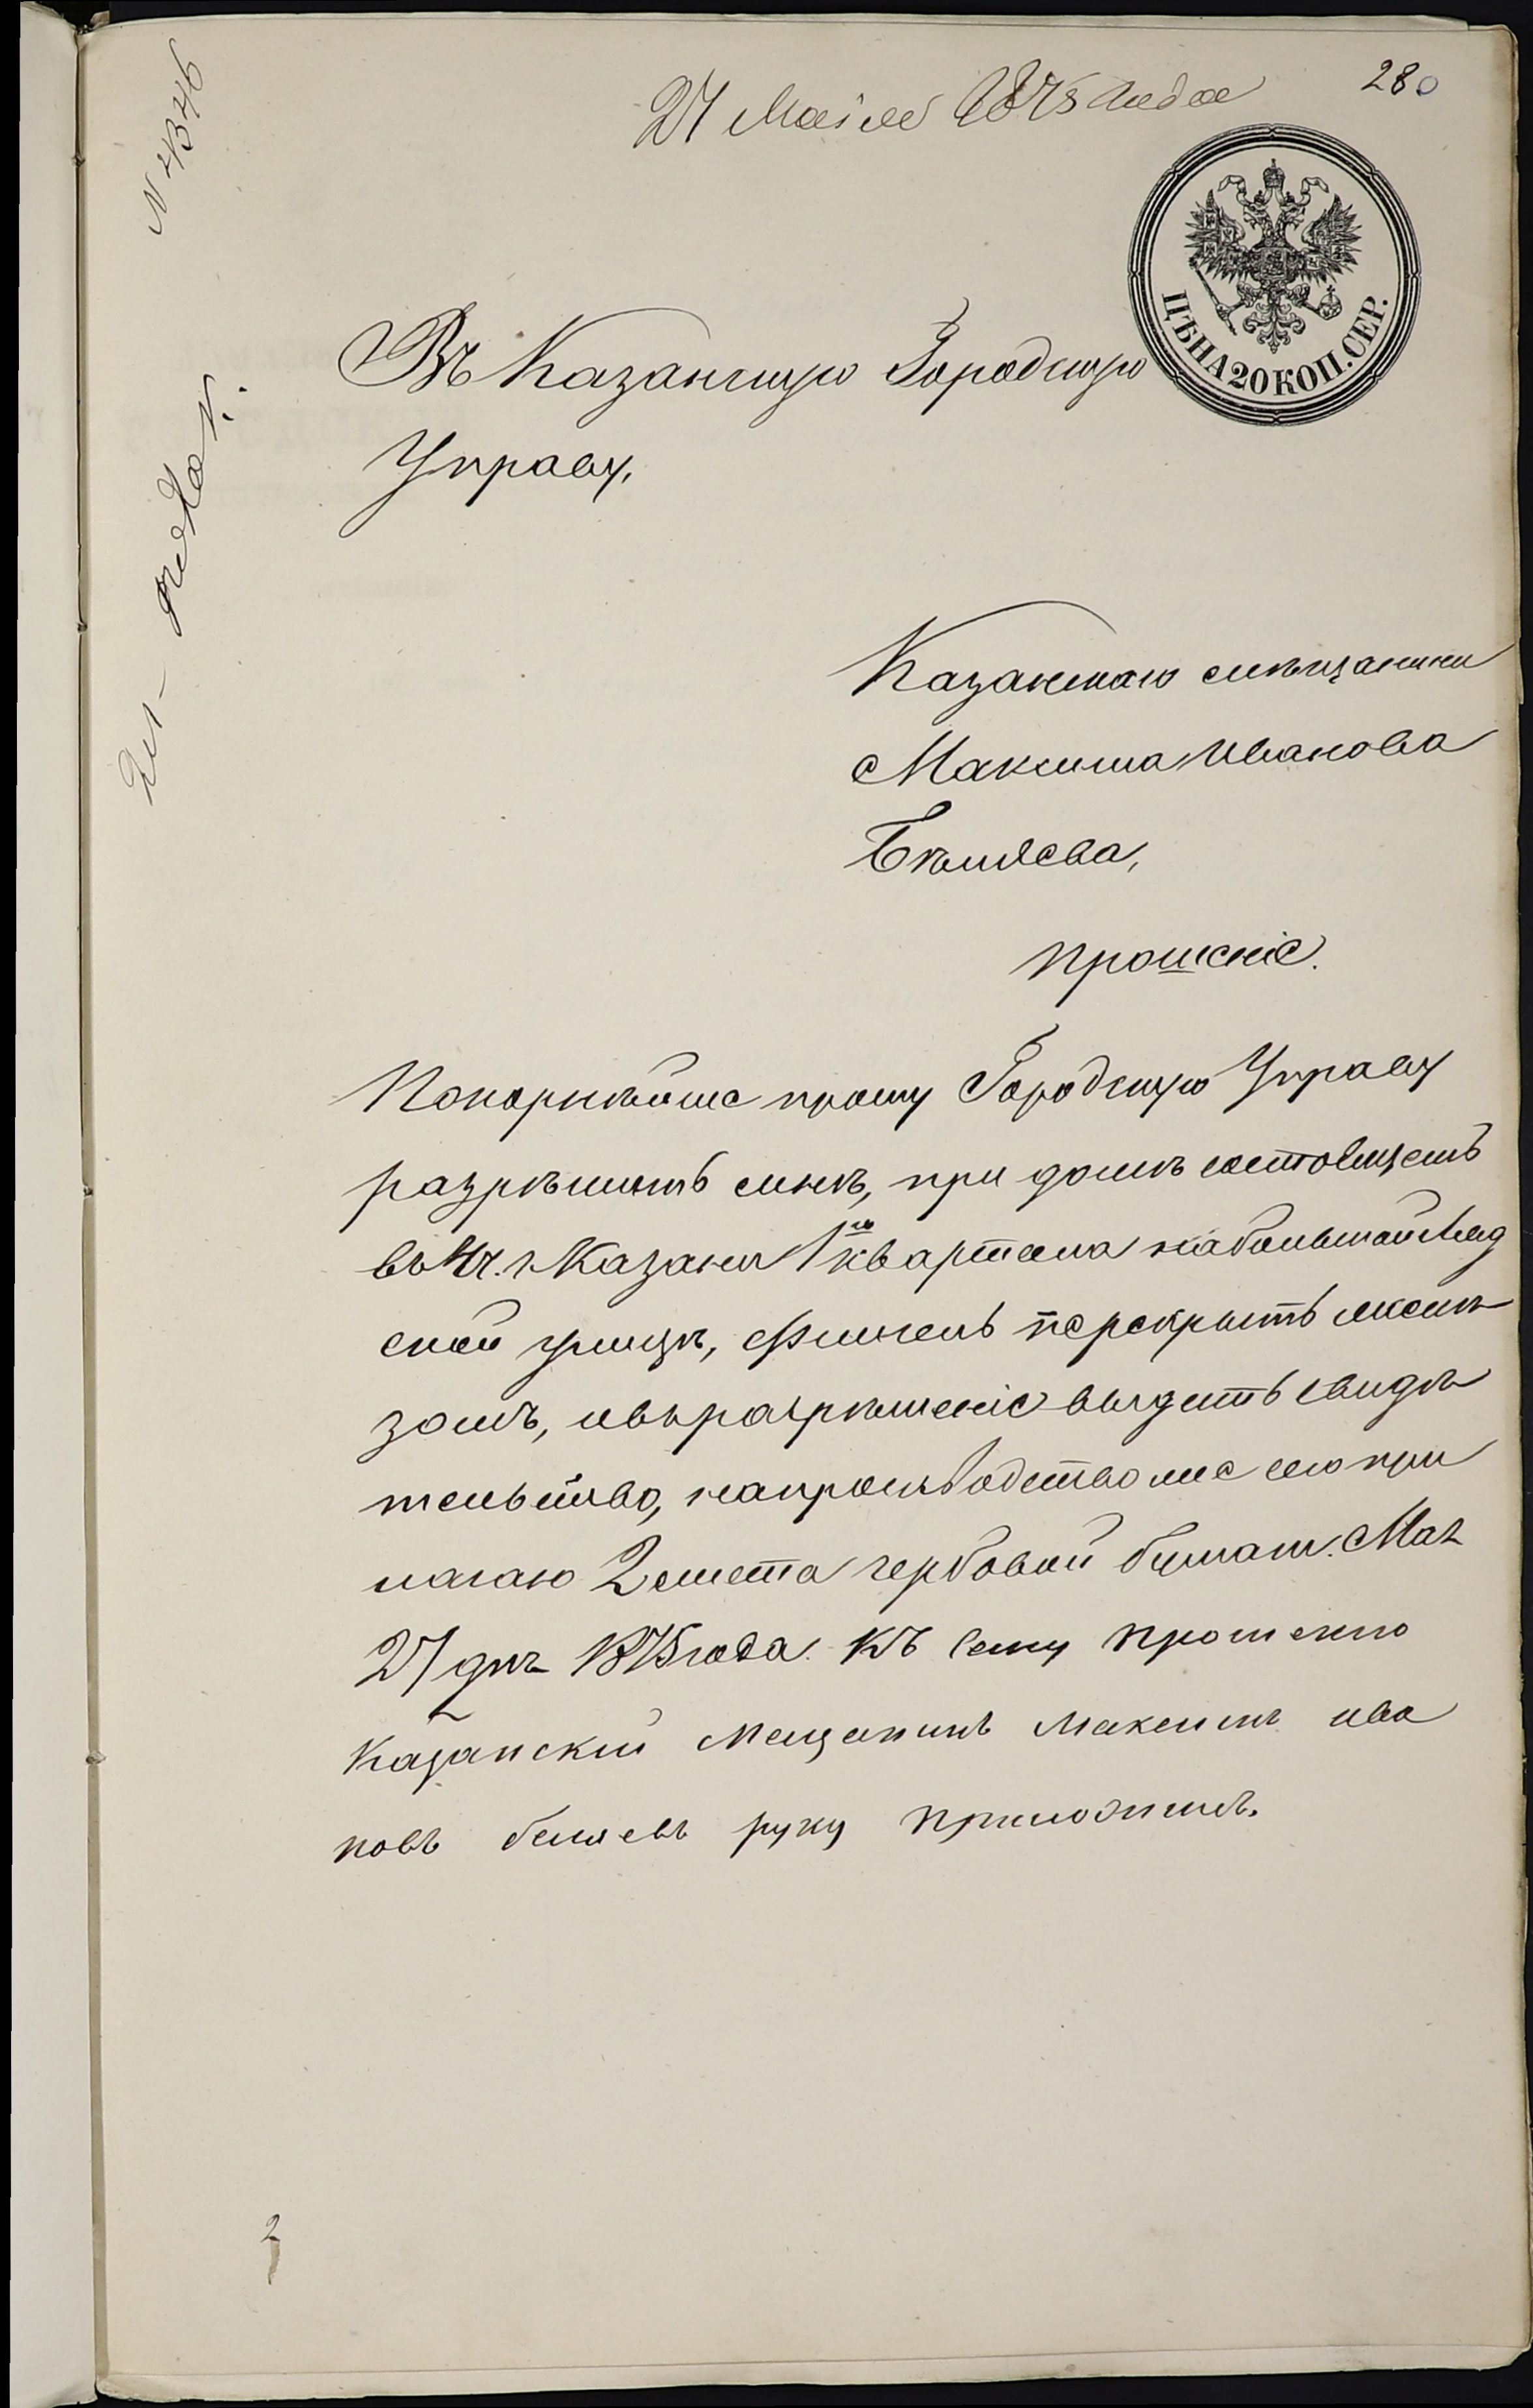 27 Маiя 1875 года
280
N 4346
ЦѢНА 20 КОП. СЕР.
Въ Казанскую Городскую
Управу,
Казанскаго мѣщанина
Максима Иванова
Бѣляева,
прошенiе.
Покорнѣйше прошу Городскую Управу
разрѣшить мнѣ, при домѣ состоящемъ
въ 4 ч. г. Казани 1го квартала на большой
ской улицѣ, Флигель перекрыть желѣ
зомъ, и въ разрѣшенiе выдать свидѣ
тельство, на производство же сего при
лагаю 2 листа гербовой бумаги. Мая
27 дня 1875 года. Къ сему прошению
Казанский Мещанинъ Максимъ ива
новъ беляевъ руку приложилъ.
2